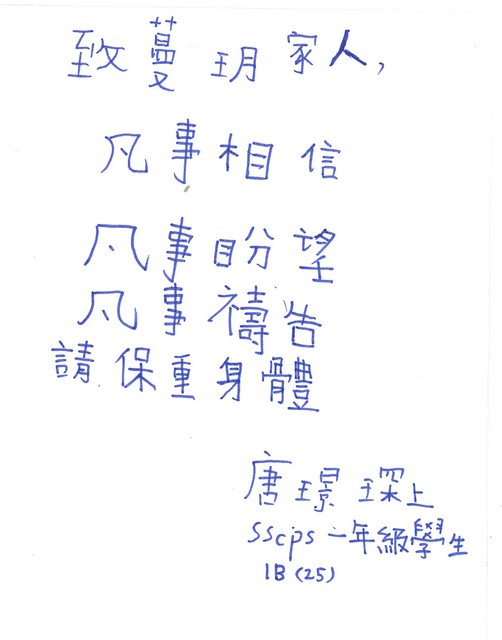 致蔓玥家人，
凡事相信
凡事盼望
凡事禱告
請保重身體
唐璟琛上
sscps 一年級學生
1B (25)